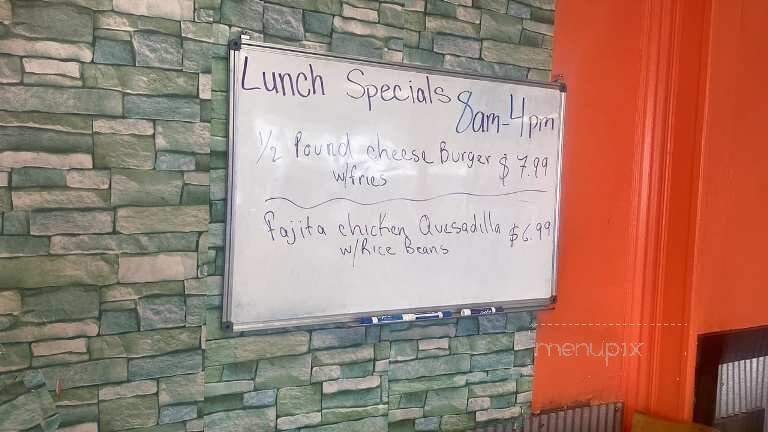 Lunch Specials 8am-4pm
1/2 Pound cheese Burger $ 7.99
w/fries
Fajita chicken Quesadilla $6.99
w/Rice Beans
menupix